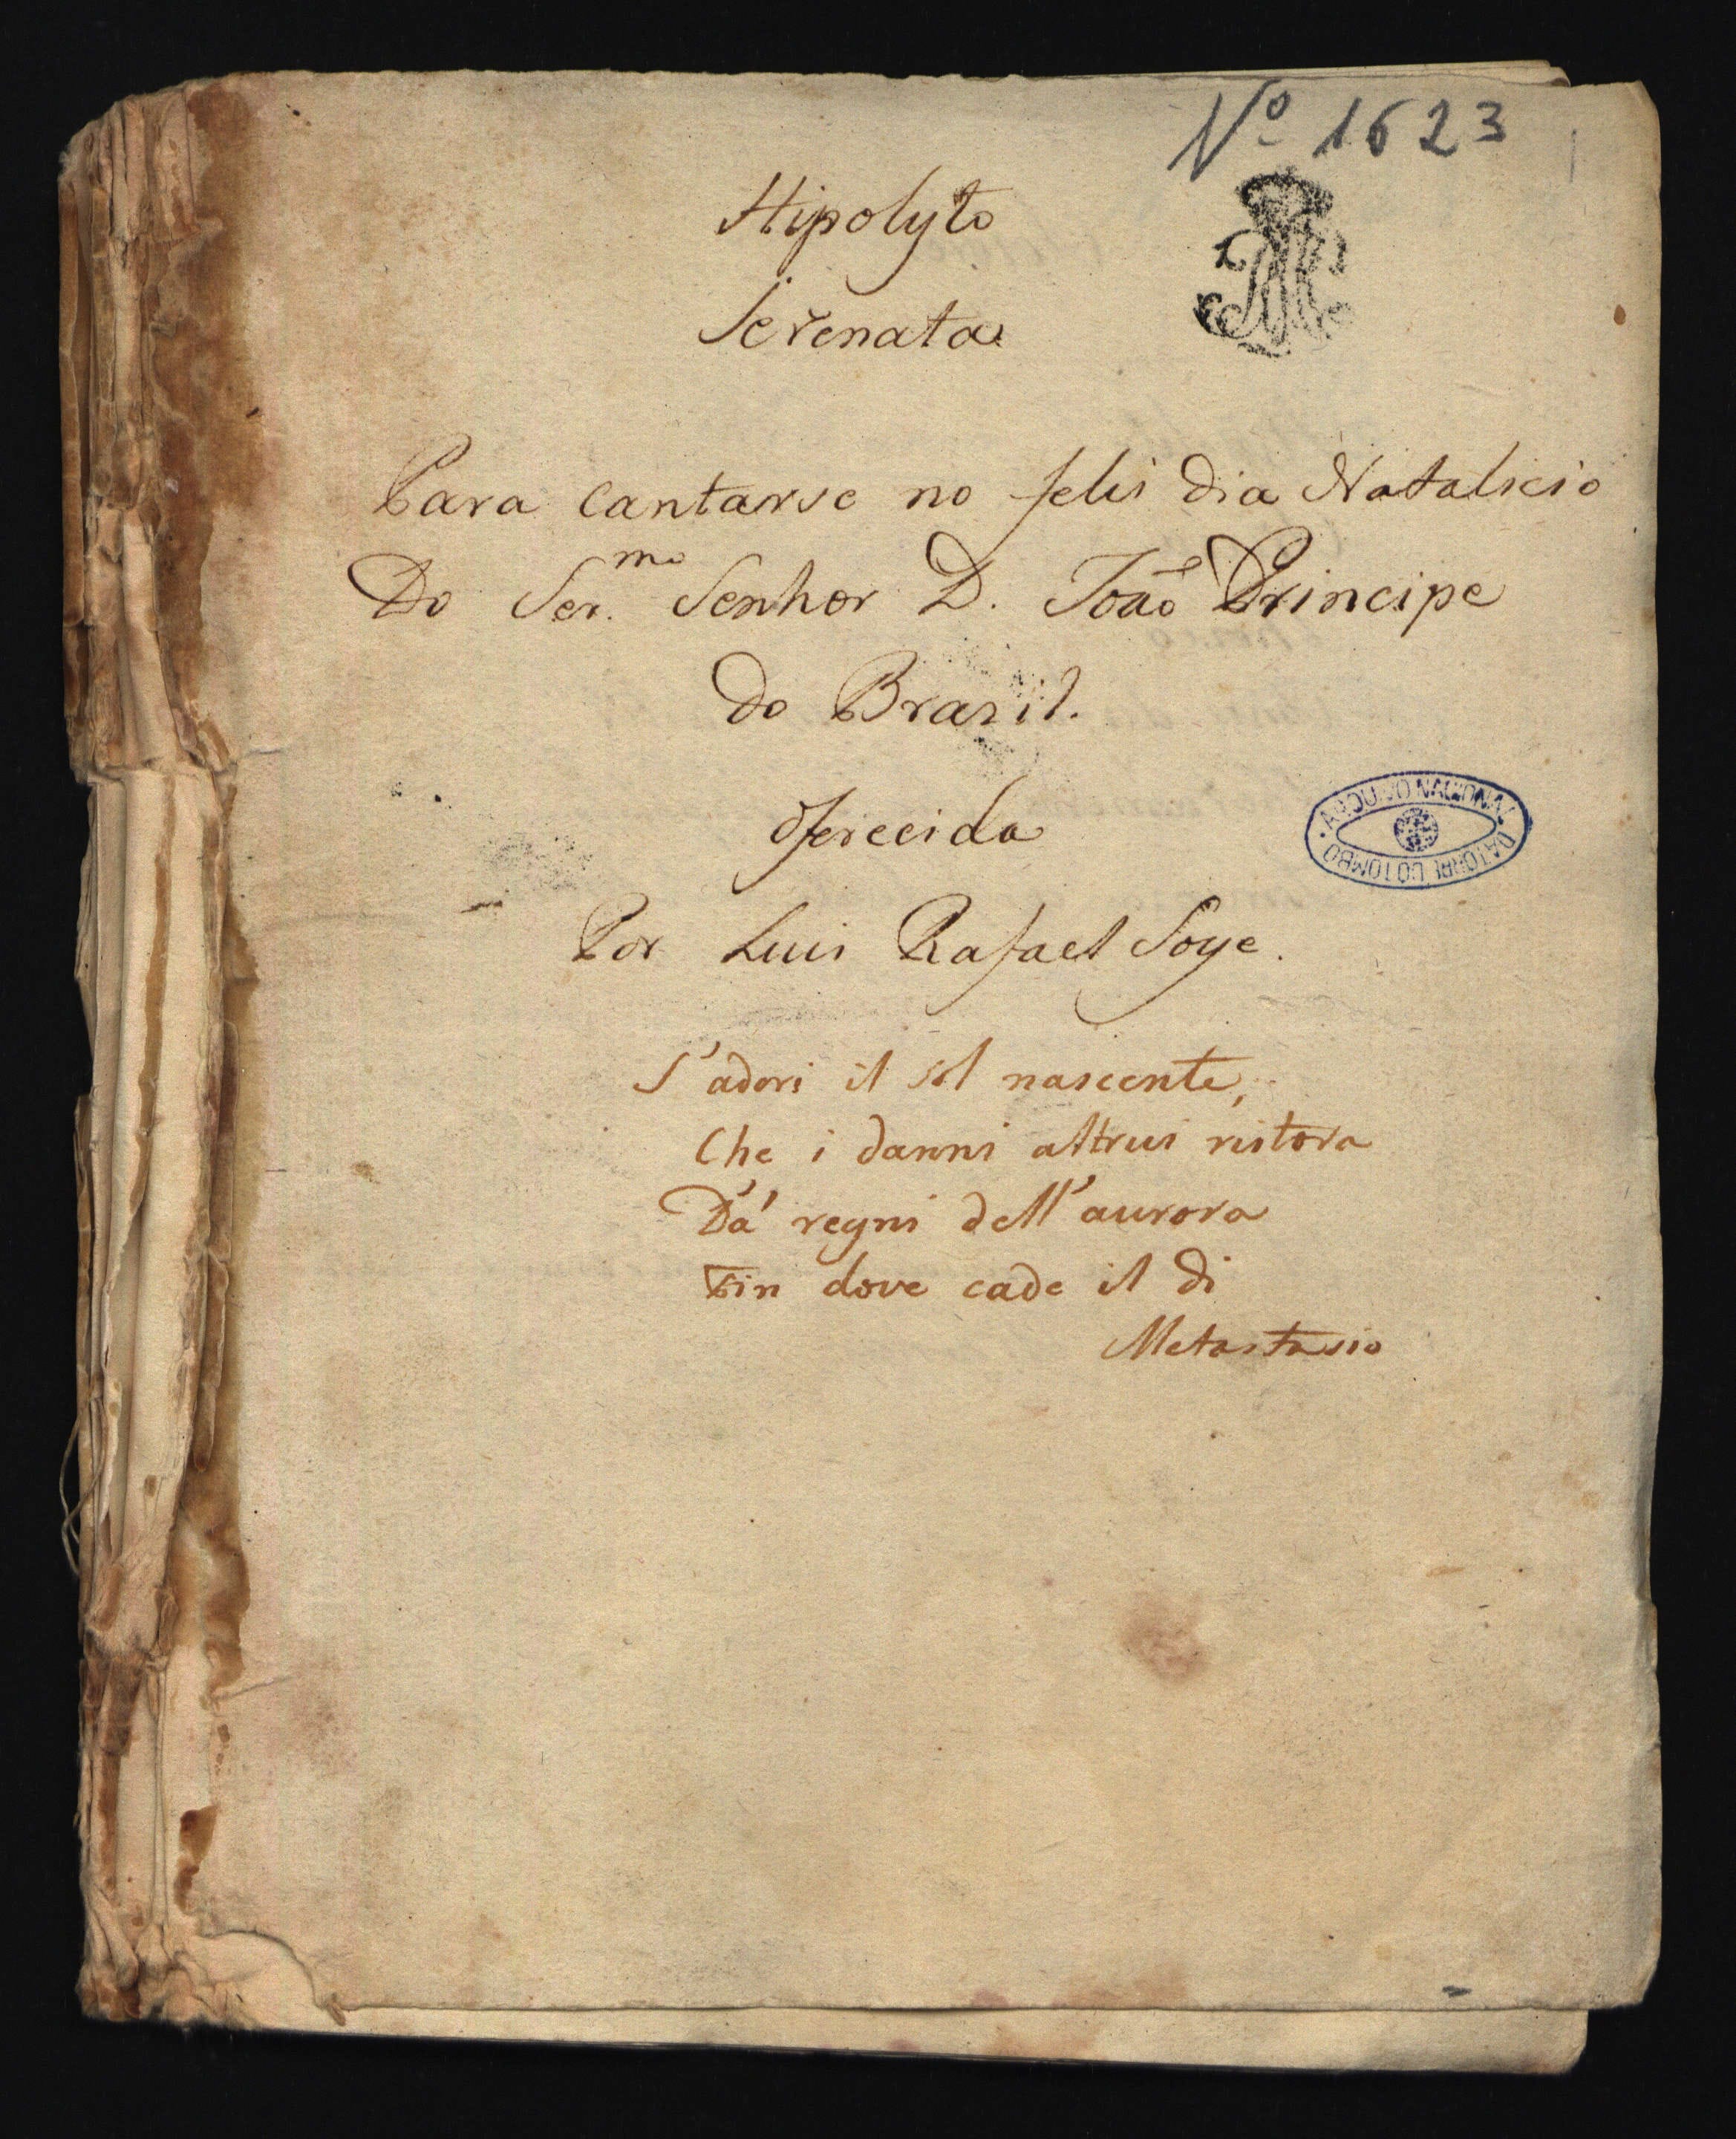 Nº 1623
Hipolyto
Serenata
Para cantarse no felis dia Natalicio
Do Ser.mo Senhor D. João Principe
do Brazil.
Oferecida
Por Luis Rafael Soye.
S'adori il sol nascente,
Che i danni altrui ristora
Da' regni dell'aurora
Fin dove cade il di
Metastasio
ARQUIVO NACIONAL
DA TORRE DO TOMBO